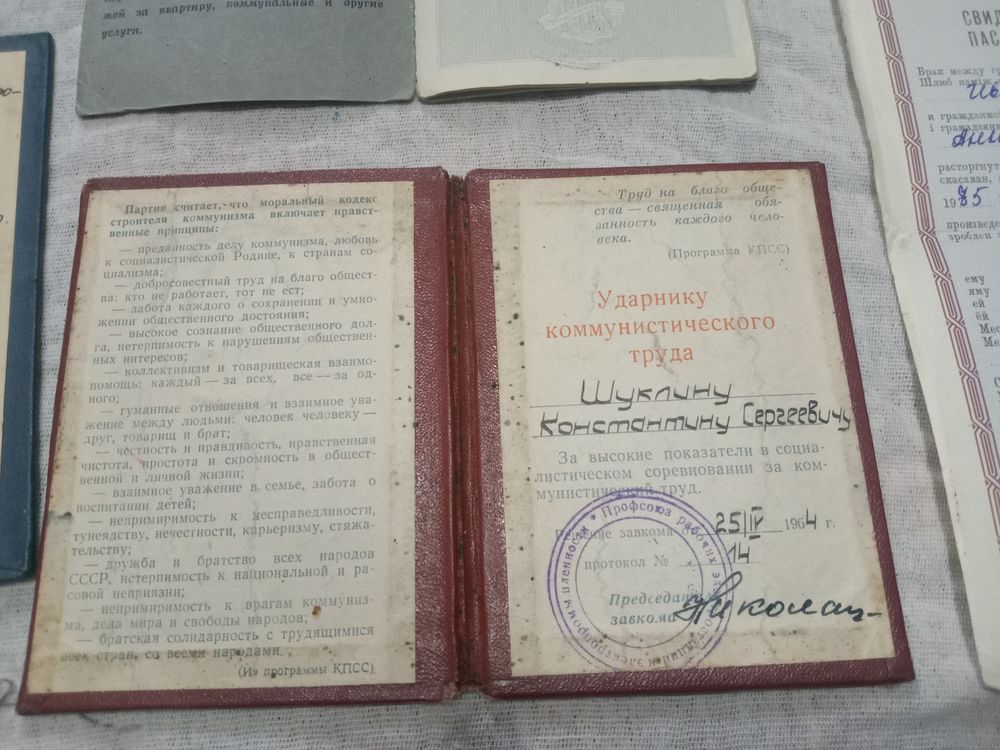 жей за квартиру, коммунальные и другие
услуги.
Партия считает, что моральный кодекс
строителя коммунизма включает нравст-
венные принципы:
— преданность делу коммунизма, любовь
к социалистической Родине, к странам со-
циализма;
— добросовестный труд на благо общест-
ва: кто не работает, тот не ест;
— забота каждого о сохранении и умно-
жении общественного достояния;
— высокое сознание общественного дол-
га, нетерпимость к нарушениям обществен-
ных интересов;
— коллективизм и товарищеская взаимо-
помощь: каждый — за всех, все — за од-
ного;
— гуманные отношения и взаимное ува-
жение между людьми: человек человеку —
друг, товарищ и брат;
— честность и правдивость, нравственная
чистота, простота и скромность в общест-
венной и личной жизни;
— взаимное уважение в семье, забота о
воспитании детей;
— непримиримость к несправедливости,
тунеядству, нечестности, карьеризму, стяжа-
тельству;
— дружба и братство всех народов
СССР, нетерпимость к национальной и ра-
совой неприязни;
— непримиримость к врагам коммуниз-
ма, дела мира и свободы народов;
— братская солидарность с трудящимися
всех стран, со всеми народами.
(Из программы КПСС)
Труд на благо обще-
ства — священная обя-
занность каждого чело-
века.
(Программа КПСС)
Ударнику
коммунистического
труда
Шуклину
Константину Сергеевичу
За высокие показатели в социа-
листическом соревновании за ком-
мунистический труд.
Решение завкома от 25/IV 1964 г.
протокол № 14
Председатель
завкома
Профсоюз рабочих
СВИД
ПАС
Брак между гр
Шлюб паміж
и гражданко
і грамадзян
расторгнут
скасаван,
1985
произведе
зроблен
ему
яму
ей
ёй
Мес
Ме